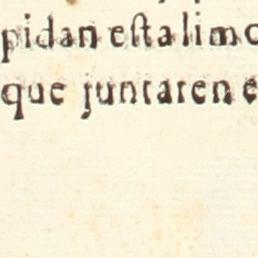 pidan esta limo
que juntaren e